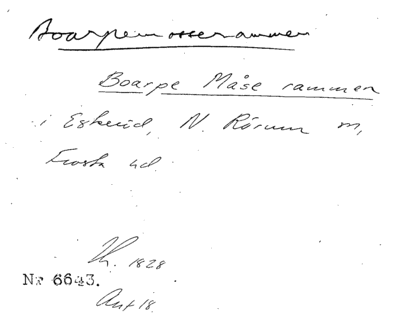 Boarpemosserammen
Boarpe Måse rammen
i Eskerid, N. Rörum m,
Frosta hd.
Th. 1828
Nr 6643.
Ant 18